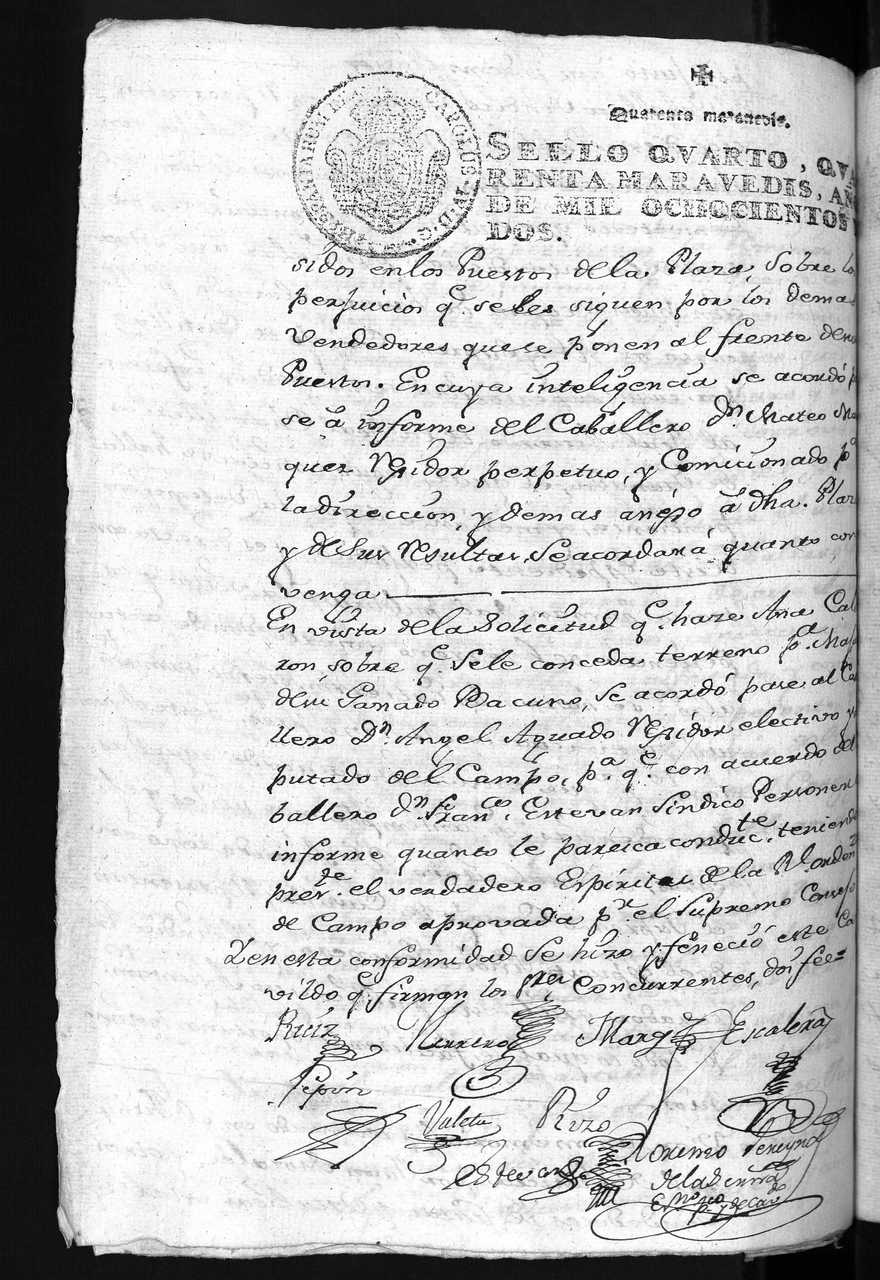 Quarenta maravedis.
SELLO QVARTO, QVA
RENTA MARAVEDIS, AÑ
DE MIL OCHOCIENTOS
DOS.
CAROLUS IV D. G. HISPANIARUM REX
sidos en los Puestos de la Plaza, sobre los
perjuicios q.e se les siguen por los demas
Vendedores que se ponen al frente de
Puestos. En cuya inteligencia se acordó p
se â informe del Caballero Dn. Mateo Ma
quez Regidor perpetuo, y Comicionado p.a
la dirección, y demas anejo â dha. Plaza
y de sus resultas, se acordará quanto con
venga
En vista de la Solicitud q.e hace Ana Cal
ron sobre q.e se le conceda terreno p.a Ma
de su Ganado Bacuno, se acordó pase al Ca
llero Dn. Angel Aguado Regidor electivo y
putado del Campo, p.a q.e con acuerdo del
ballero Dn. Fran.co Estevan Sindico Personer
informe quanto le paresca conduc.te teniendo
pres.te el verdadero Espiritu de la Rl. orden
de Campo aprovada p.r el Supremo Consejo
Y en esta conformidad se hizo y feneció este Ca
vildo q.e firman los Sres. Concurrentes, doi fee=
Ruiz Herrero Marqz Escalera
Pepin
Valeta Rizo
Estevan Lorenzo Pereyra
de la Serna
Es.no